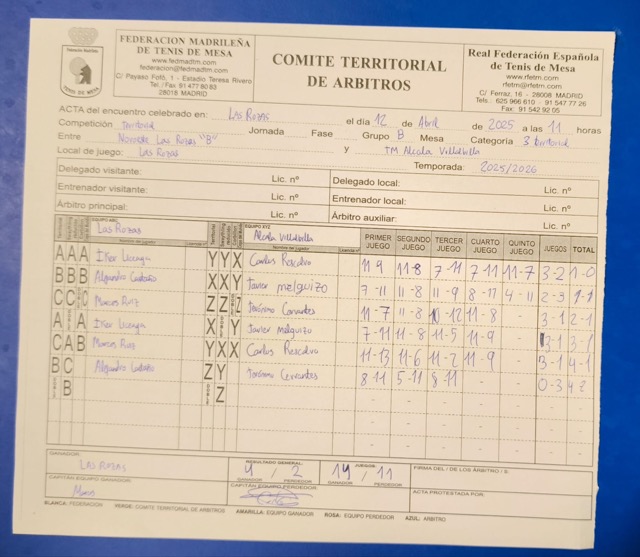 FEDERACION MADRILEÑA
DE TENIS DE MESA
www.fedmadtm.com
federacion@fedmadtm.com
C/ Payaso Fofó, 1 - Estadio Teresa Rivero
Tel. / Fax 91 477 80 83
28018 MADRID
TENIS DE MESA
COMITE TERRITORIAL
DE ARBITROS
Real Federación Española
de Tenis de Mesa
www.rfetm.com
rfetm@rfetm.com
C/ Ferraz, 16 - 28008 MADRID
Tels. 625 966 610 - 91 547 77 26
Fax: 91 542 92 05
ACTA del encuentro celebrado en: Las Rozas el día 12 de Abril de 2025 a las 11 horas
Competición Territorial Jornada Fase Grupo B Mesa Categoría 3 territorial
Entre Las Rozas "B" y TM Alcala Villalbilla
Local de juego: Las Rozas Temporada: 2025/2026
Delegado visitante: Lic. nº Delegado local: Lic. nº
Entrenador visitante: Lic. nº Entrenador local: Lic. nº
Árbitro principal: Lic. nº Árbitro auxiliar: Lic. nº
EQUIPO ABC Las Rozas EQUIPO XYZ Alcala Villalbilla PRIMER JUEGO SEGUNDO JUEGO TERCER JUEGO CUARTO JUEGO QUINTO JUEGO JUEGOS TOTAL
Nombre del jugador Licencia nº Nombre del jugador Licencia nº
A A A Iker YYX Carlos Rescalvo 11-9 11-8 7-11 7-11 11-7 3-2 1-0
B B B Alejandro XXY Javier melguizo 7-11 11-8 11-9 8-11 4-11 2-3 1-1
C C Marcos Ruiz Z Z Z Jerónimo Cervantes 11-7 11-8 10-12 11-8 3-1 2-1
A A Iker X Y Javier melguizo 7-11 11-8 11-5 11-9 3-1 3-1
C A B Marcos Ruiz YXX Carlos Rescalvo 11-13 11-6 11-2 11-9 3-1 4-1
B C Alejandro Z Y Jerónimo Cervantes 8-11 5-11 8-11 - - 0-3 4-2
B Z
GANADOR: LAS ROZAS
RESULTADO GENERAL: 4 / 2
GANADOR PERDEDOR
JUEGOS: 14 / 11
GANADOR PERDEDOR
FIRMA DEL / DE LOS ÁRBITRO / S:
CAPITÁN EQUIPO GANADOR
CAPITÁN EQUIPO PERDEDOR
ACTA PROTESTADA POR:
BLANCA: FEDERACIÓN VERDE: COMITE TERRITORIAL DE ARBITROS AMARILLA: EQUIPO GANADOR ROSA: EQUIPO PERDEDOR AZUL: ARBITRO